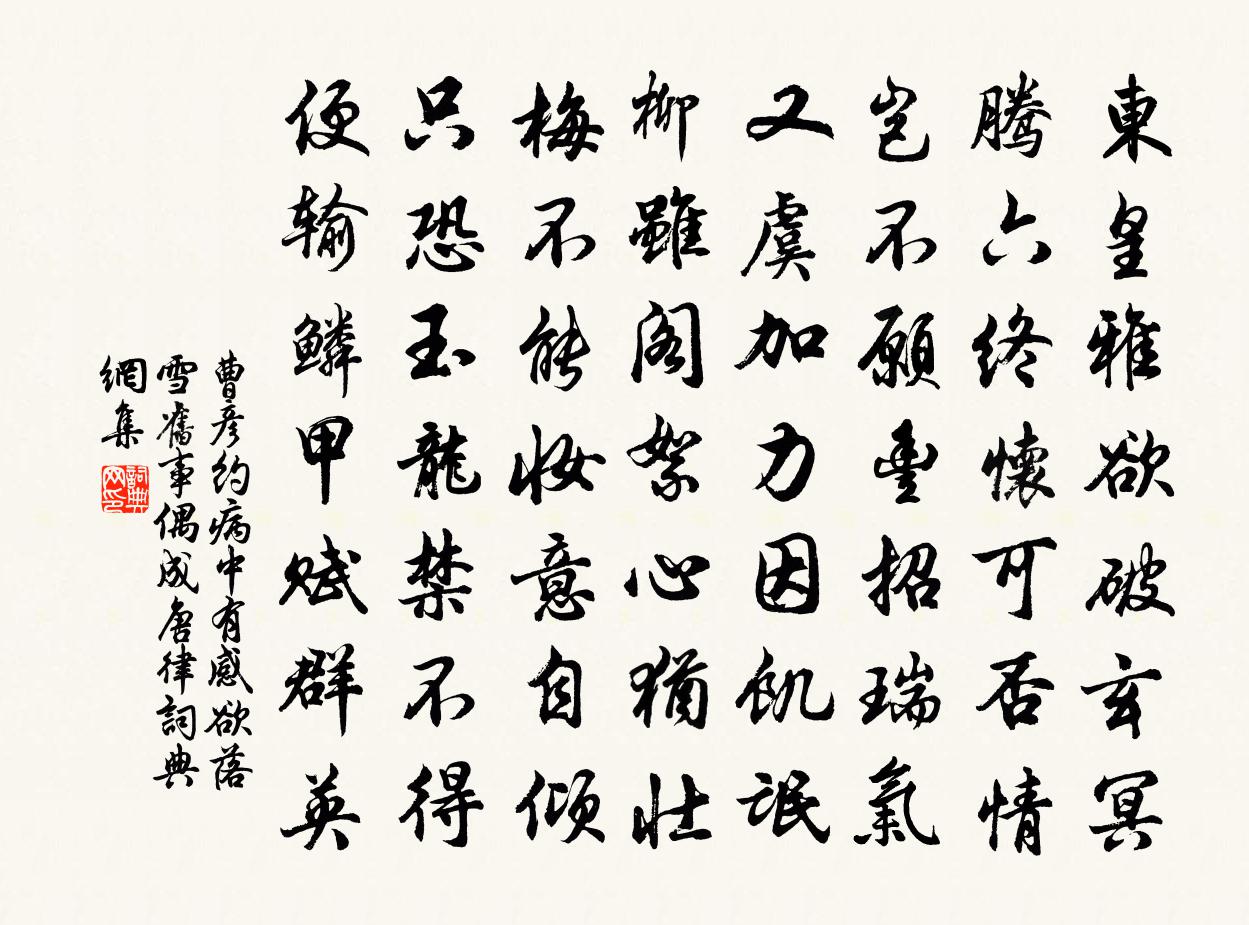 東皇雅欲破玄冥
騰六終懷可否情
豈不願豐招瑞氣
又虞加力因飢氓
柳雖閣絮心猶壯
梅不能妝意自傾
只恐玉龍禁不得
便输鱗甲賦群英
曹彦约病中有感欲落
雪舊事偶成唐律詞典
網集
詞典网印